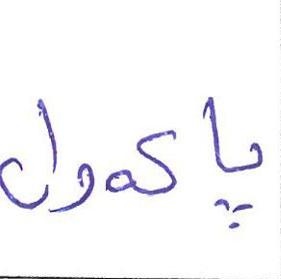 پاکەول